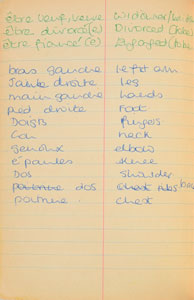 être veuf, veuve widower/
être divorcé(e) Divorced
être fiancé(e) Engaged
bras gauche left arm
Jambe droite Leg
main gauche hands
pied droite Foot
Doigts fingers
Cou neck
genoux elbow
épaules knee
Dos shoulder
dos
poitrine. chest